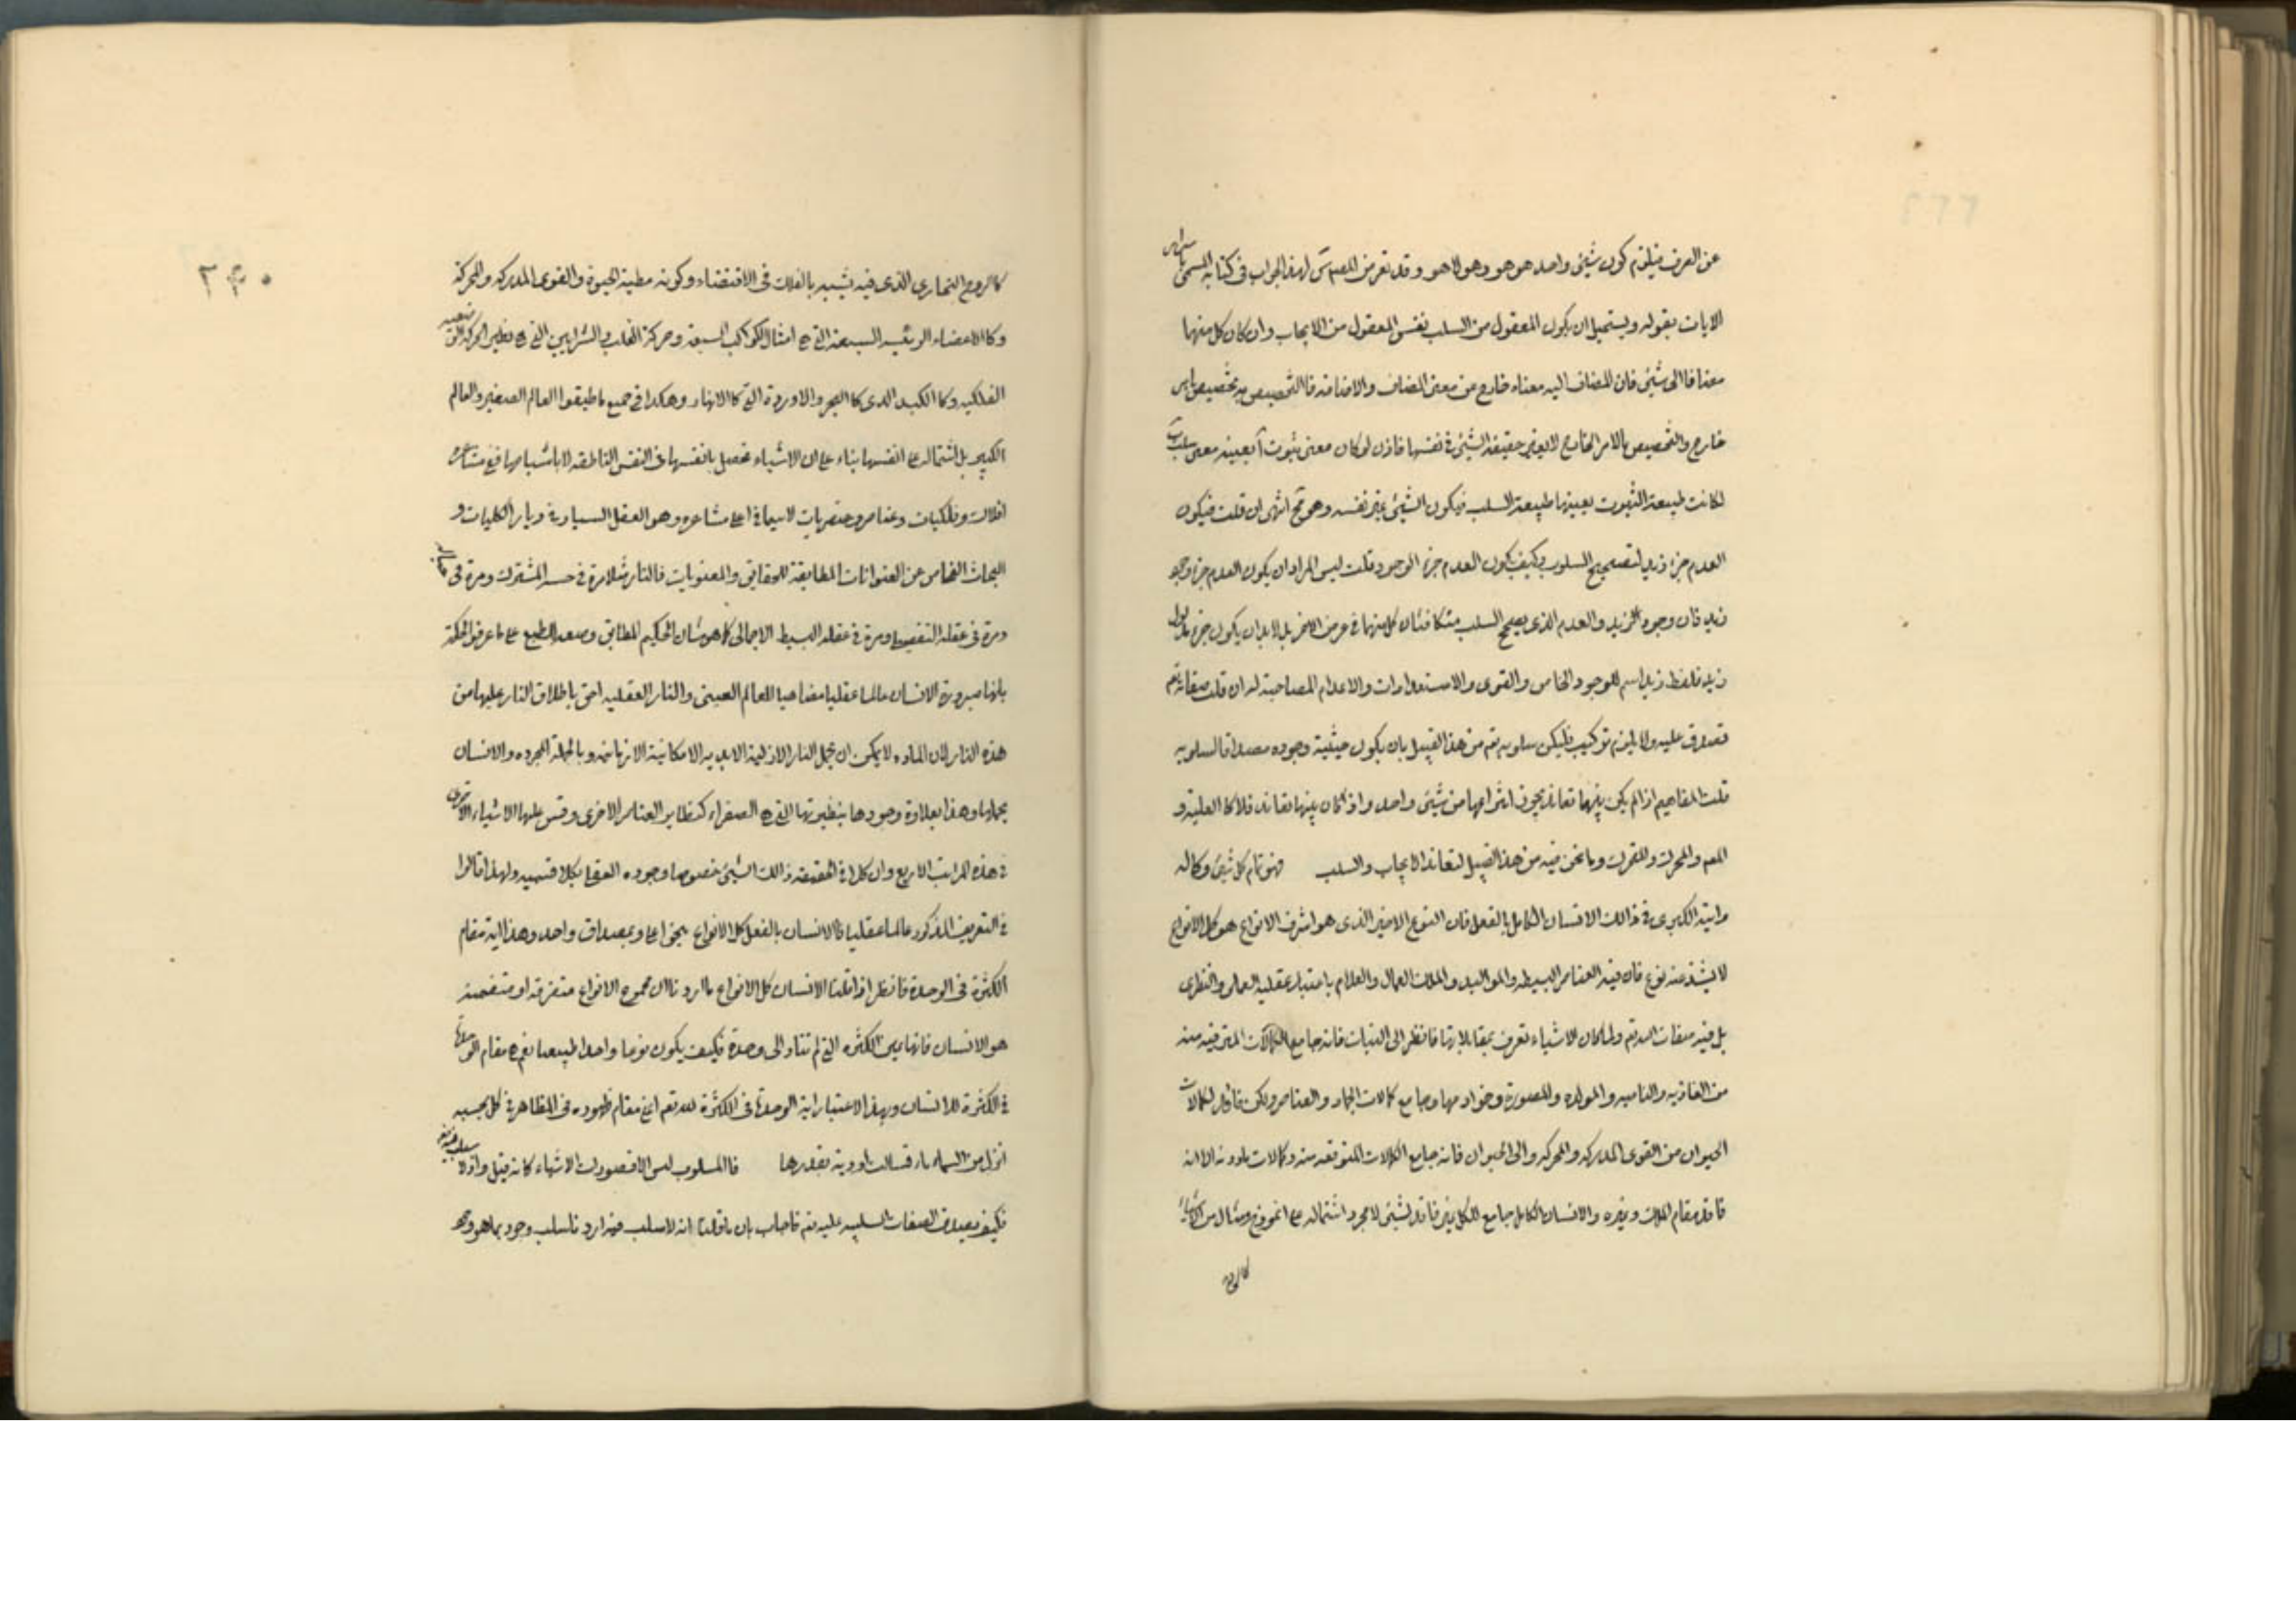 عن العرف فيلزم كون شيئ واحد هو هو وهو لا هو وقد تعرض المصنف س لهذا الجواب في كتابه المسمى باسرار
الايات بقوله ويستحيل ان يكون المعقول من السلب نفس المعقول من الايجاب وان كان كل منهما
مضافا الى شيئ فان المضاف اليه معناه خارج عن معنى المضاف والاضافه فالتخصيص به تخصيص بامر
خارج والتخصيص بالامر الخارج لا يغير حقيقة الشيئ في نفسها فاذن لو كان معنى ثبوت آ بعينه معنى سلب ب
لكانت طبيعة الثبوت بعينها طبيعة السلب فيكون الشيئ غير نفسه وهو مح انتهى ان قلت فيكون
العدم جزء زيد لتصحيح السلوب وكيف يكون العدم جزء الوجود قلت ليس المراد ان يكون العدم جزء وجود
زيد فان وجود زيد والعدم الذي يصحح السلب متكافئان كل منهما في عرض الاخر بل لابد ان يكون جزء
زيد فلفظ زيد اسم للوجود الخاص والقوى والاستعدادات والاعدام المصاحبة له ان قلت صفاته تعم
تصدق عليه ولا يلزم تركيب فليكن سلوبه تعم من هذا القبيل بان يكون حيثية وجوده مصداقا لسلوبه
قلت المفاهيم اذا لم يكن بينهما تعاند يجوز انتزاعها من شيئ واحد واذا كان بينها تعاند فلا كالعلية و
المع والمحرك والمتحرك وما نحن فيه من هذا القبيل لتعاند الايجاب والسلب فهو تمام كل شيئ وكماله
وايته الكبرى في ذالك الانسان الكامل بالفعل فان النوع الاخير الذى هو اشرف الانواع هو كل الانواع
لا يشذ عنه نوع فان فيه العناصر البسيطه والمواليد والملك العمال والعلام باعتبار عقليه العملى والنظرى
بل فيه صفات الله تعم ولما كان الاشياء تعرف بمقابلاتها فانظر الى النبات فانه جامع الكمالات المترقبه منه
من الغاذيه والناميه والمولده والمصورة وخوادمها وجامع كمالات الجماد والعناصر ولكن فاقد لكمالات
الحيوان من القوى المدركه والمحركه والى الحيوان فانه جامع الكمالات المتوقعه منه وكمالات مادونه الا انه
فاقد مقام الملك وغيره والانسان الكامل جامع للكل غير فاقد لشيئ لا مجرد اشتماله على انموذج ومثال من الاشياء
كالروح
۲۴۰
كالروح البخاري الذى فيه يشبيه بالفلك في الاقتضاء وكونه مطية الحيوة والقوى المدركه والمحركة
وكالاعضاء الرئيسه السبعة التي هي امثال الكواكب السبعة وحركة القلب والشرايين التي هي نظير الحركة
الفلكيه وكالكبد الذى كالبحر والاوردة التي كالانهار وهكذا في جميع ما طبقوا العالم الصغير والعالم
الكبير بل اشتماله على انفسها بناء على ان الاشياء تحصل بانفسها في النفس الناطقه لا باشباحها ففي مشاعره
افلاك وفلكيات وعناصر وعنصريات لاسيما في اعلى مشاعره وهو العقل السيار في ديار الكليات و
البحاث الفحاص عن العنوانات المطابقة للحقايق والمعنويات فالنار مثلا مرة في حسه المشترك ومرة في خياله
ومرة في عقله التفصيلى ومرة في عقله البسيط الاجمالى كما هو شان الحكيم المطابق وضعه الطبع على ما عرفوا الحكمة
بانها صيرورة الانسان عالما عقليا مضاهيا للعالم العينى والنار العقليه احق باطلاق النار عليها من
هذه النار لان الماده لا يمكن ان تحمل النار الازلية الابديه الامكانية الازمانيه وبالجملة المجرده والانسان
يحملها وهذا بعلاوة وجودها بنظيرتها التي هي الصفراء كنظاير العناصر الاخرى وقس عليها الاشياء الاخرى
في هذه المراتب الاربع وان كلا في الحقيقه ذالك الشيئ خصوصا وجوده العقلى بكلا قسميه ولهذا قالوا
في التعريف المذكور عالما عقليا فالانسان بالفعل كل الانواع بنحو اعلى وبمصداق واحد وهذا اية مقام
الكثرة في الوحدة فانظر اذا قلنا الانسان كل الانواع ما اردنا ان مجموع الانواع متفرقه او منضمة
هو الانسان فانها من الكثره التي لم تتاد الى وحدة فكيف يكون نوعا واحدا طبيعيا نعم هو مقام الوحدة
في الكثرة للانسان وبهذا الاعتبار اية الوحدة في الكثرة لله تعم اعنى مقام ظهوره في المظاهر في كل بحسبه
انزل من السماء ماء فسالت اودية بقدرها فالمسلوب ليس الا قصورات الاشياء كانه قيل واذا لم
فكيف يصدق الصفات السلبيه عليه تعم فاجاب بان ما قلنا انه لا سلب فيه اردنا سلب وجود بما هو وجود